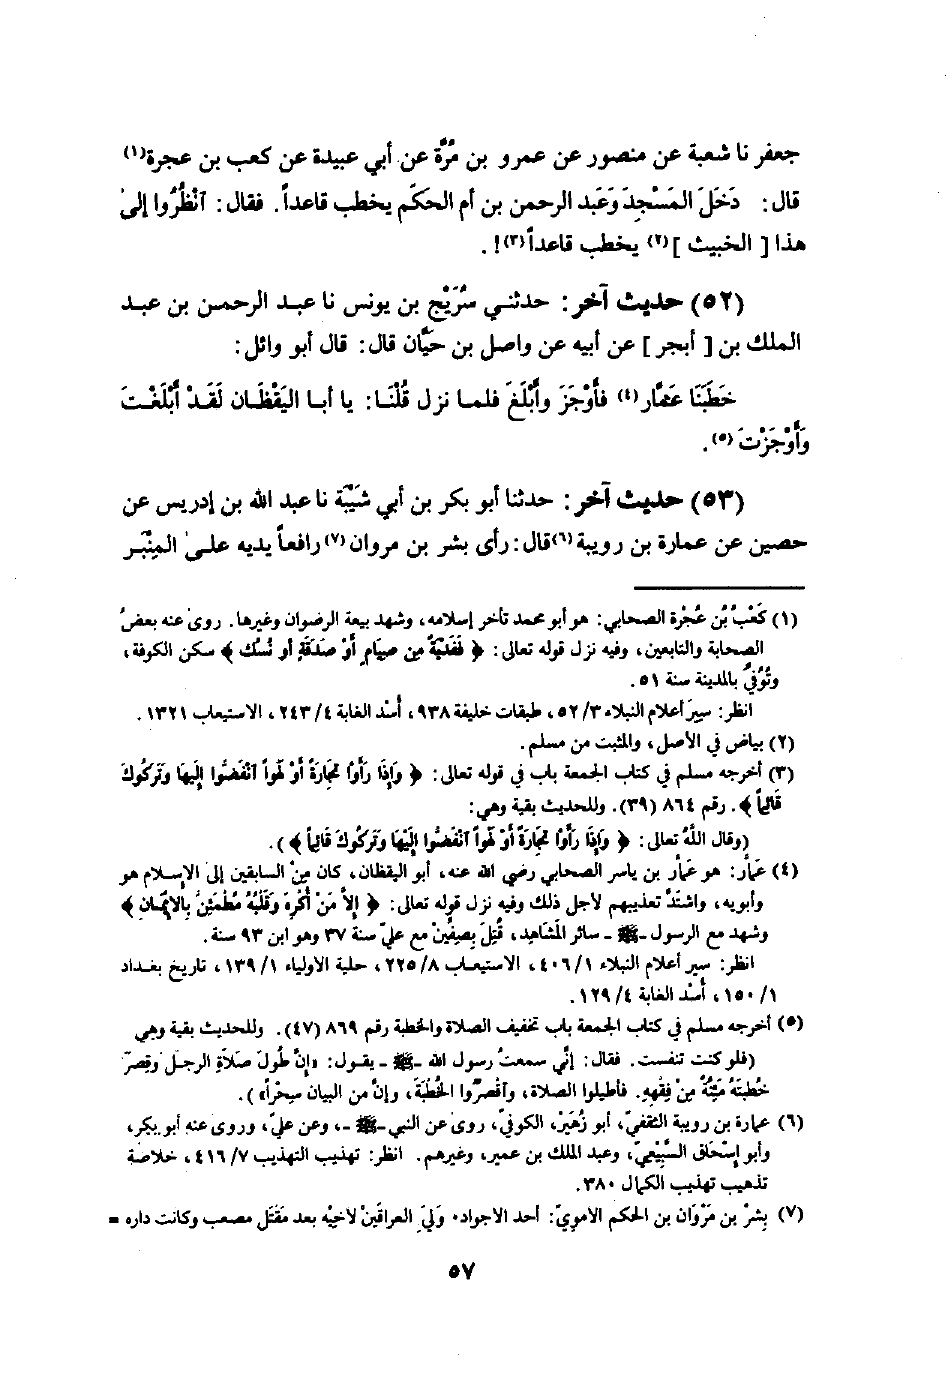 جعفر نا شعبة عن منصور عن عمرو بن مُرَّة عن أبي عبيدة عن كعب بن عجرة(١)
قال: دَخَلَ المَسْجِدَ وَعَبد الرحمن بن أم الحكَم يخطب قاعداً. فقال: آنْظُرُوا إلىٰ
هذا [ الخبيث ](٢) يخطب قاعداً(٣)!.
(٥٢) حديث آخر: حدثني سُرَيْج بن يونس نا عبد الرحمن بن عبد
الملك بن [ أبجر ] عن أبيه عن واصل بن حيَّان قال: قال أبو وائل:
خَطَبَنَا عَمَّار(٤) فأَوْجَزَ وأَبْلَغَ فلما نزل قُلْنَا: يا أبا اليَقْظَان لَقَدْ أَبْلَغْتَ
وَأَوْجَزْتَ(٥).
(٥٣) حديث آخر: حدثنا أبو بكر بن أبي شَيْبَة نا عبد الله بن إدريس عن
حصين عن عمارة بن رويبة(٦) قال: رأى بشر بن مروان(٧) رافعاً يديه علىٰ المِنْبَر
(١) كَعْبُ بُن عُجْرَة الصحابي: هو أبو محمد تأخر إسلامه، وشهد بيعة الرضوان وغيرها. روىٰ عنه بعضُ
الصحابة والتابعين، وفيه نزل قوله تعالى: ﴿ فَفَدْيَةٌ مِن صِيَامٍ أَوْ صَدَقَةٍ أو نُسُك ﴾ سكن الكوفة،
وتُوُفّيَ بالمدينة سنة ٥١.
انظر: سيرَ أعلام النبلاء ٣/ ٥٢، طبقات خليفة ٩٣٨، أُسْد الغابة ٤/ ٢٤٣، الاستيعاب ١٣٢١.
(٢) بياض في الأصل، والمثبت من مسلم.
(٣) أخرجه مسلم في كتاب الجمعة باب في قوله تعالى: ﴿ وَإِذَا رَأَوْا تِجَارَةً أَوْ لَهْواً آنْفَضُّوا إِلَيهَا وَتَرَكُوكَ
قَائِماً ﴾. رقم ٨٦٤ (٣٩). وللحديث بقية وهي:
(وقال اللهُ تعالى: ﴿ وَإِذَا رَأَوْا تِجَارَةً أَوْ لَهْواً آنْفَضُّوا إِلَيْهَا وَتَرَكُوكَ قَائِماً ﴾).
(٤) عَمَّار: هو عمَّار بن ياسر الصحابي رضي الله عنه، أبو اليقظان، كان مِنْ السابقين إلىٰ الإسلام هو
وأبويه، واشتَدَّ تعذيبهم لأجل ذلك وفيه نزل قوله تعالى: ﴿ إلاَّ مَنْ أُكْرِهَ وَقَلْبُهُ مُطْمَئِنٌّ بِالايْمَانِ ﴾
وشهد مع الرسول -ﷺ- سائر المشاهِد، قُتِلَ بِصِفّيْنَ مع عليّ سنة ٣٧ وهو ابن ٩٣ سنة.
انظر: سير أعلام النبلاء ١/ ٤٠٦، الاستيعاب ٨/ ٢٢٥، حلية الأولياء ١/ ١٣٩، تاريخ بغداد
١/ ١٥٠، أُسْد الغابة ٤/ ١٢٩.
(٥) أخرجه مسلم في كتاب الجمعة باب تخفيف الصلاة والخطبة رقم ٨٦٩ (٤٧). وللحديث بقية وهي
(فلو كنت تنفست. فقال: إنّي سمعتُ رسول الله -ﷺ- يقول: «إنَّ طُولَ صَلاَةِ الرجلِ وقِصَرَ
خُطبَتَهُ مَئِنَّةٌ مِنْ فِقْهِهِ. فأطيلوا الصلاة، وآقْصُرُوا الخُطبَةَ، وإنَّ من البيان سِحْراً»).
(٦) عمارة بن رويبة الثقفيّ، أبو زُهَيْر، الكوفيّ، روىٰ عن النبي -ﷺ-، وعن عليّ، وروى عنه أبو بكر،
وأبو إسْحَاق السَّبِيْعيّ، وعبد الملك بن عمير، وغيرهم. انظر: تهذيب التهذيب ٧/ ٤١٦، خلاصة
تذهيب تهذيب الكمال ٣٨٠.
(٧) بِشرْ بن مَرْوَان بن الحكم الأمويّ: أحد الأجواد، وَليَ العراقَينْ لأخيْه بعد مَقْتَل مصعب وكانت داره =
٥٧